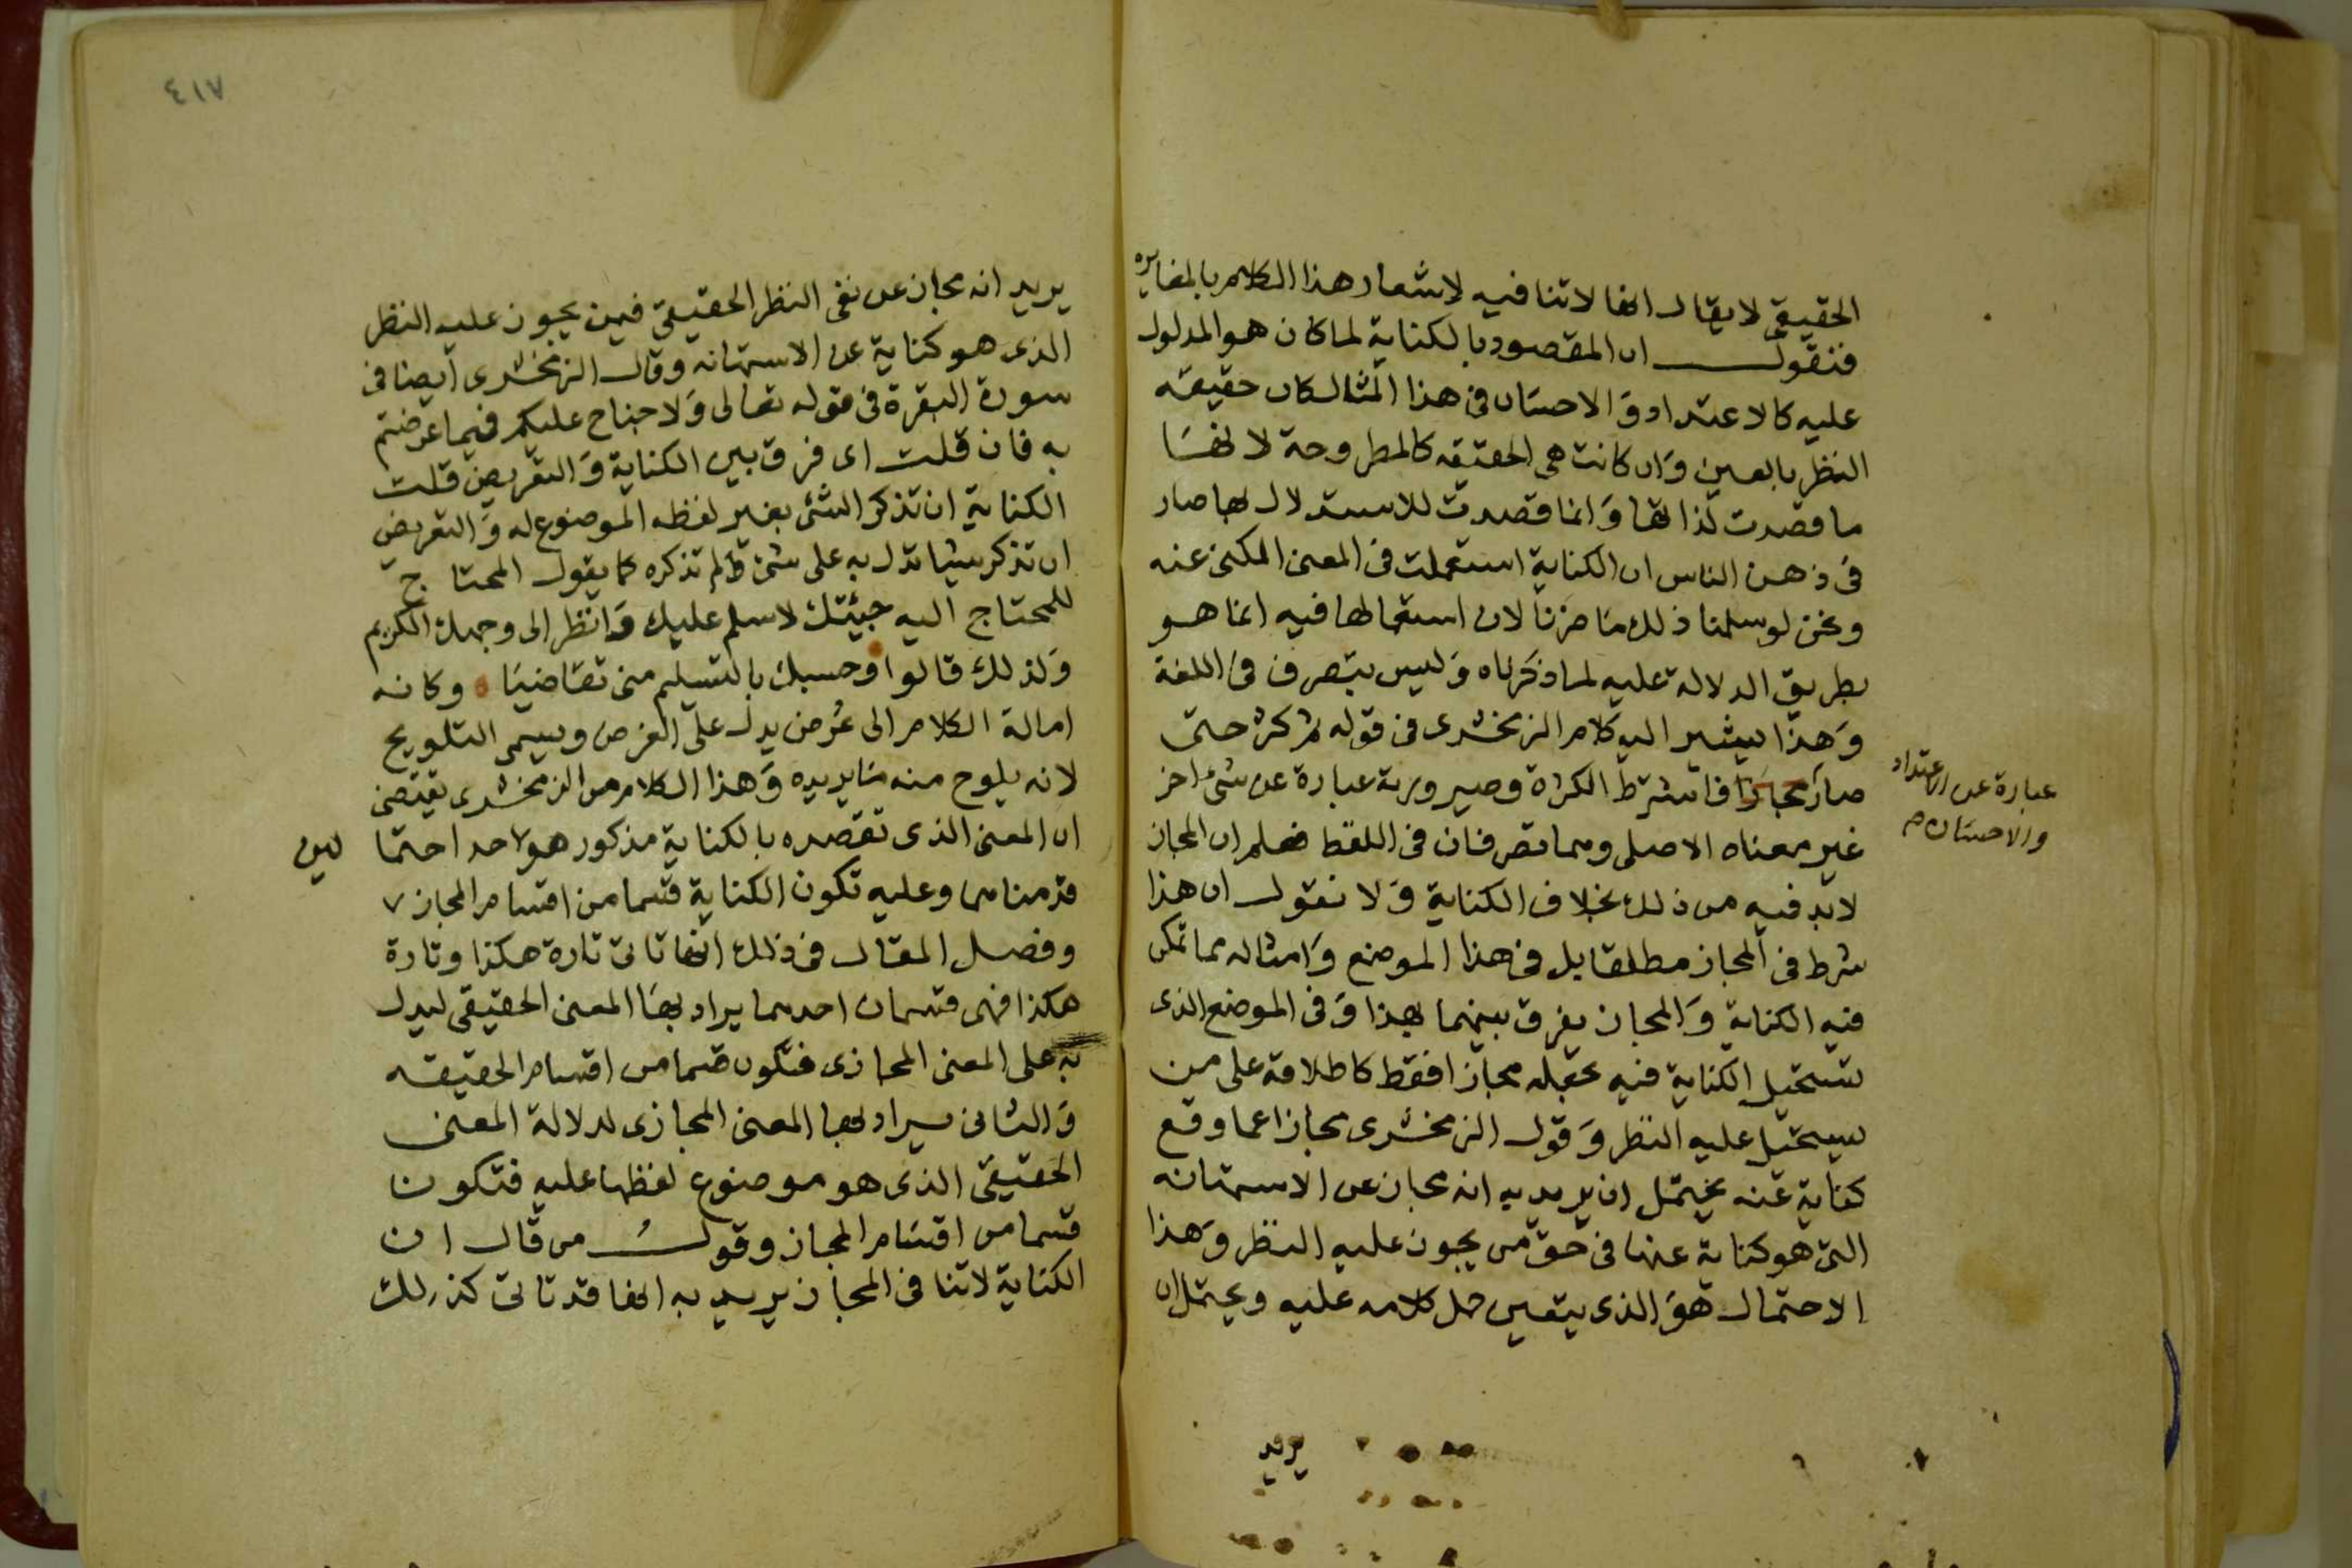 الحقيقى لا يقال انها لا تنافيه لاشعار هذا الكلام بالمغايره
فنقول ان المقصود بالكناية لما كان هو المدلول
عليه كالاعتداد وَالاحسَان فى هذا المثال كان حقيقه
النظر بالعين وَان كانت هى الحقيقه كالمطروحة لانهَا
ما قصدت لذاتها وَانما قصدت للاستدلال بها صار
فى ذهن الناس ان الكناية استعملت فى المعنى المكنى عنه
ونحن لو سلمنا ذلك مَا ضرنا لان استعمالها فيه انما هو
بطريق الدلالة عليه لما ذكرناه وَليس بتصرف فى اللغة
وَهذا يشير اليه كلام الزمخشرى فى قوله ثم كثر حتى
صار مجازا فاشترط الكثرة وصيرورته عبارة عن شئ اخر
عبارة عن الاعتداد
والاحسَان م
غير معناه الاصلى وهما تصرفان فى اللفظ فعلم ان المجاز
لابد فيه من ذلك بخلاف الكناية وَلا نقول ان هذا
شرط فى المجاز مطلقا بل فى هذا الموضع وَامثاله مما تمكن
فيه الكناية وَالمجاز يفرق بينهما بهذا وَفى الموضع الذى
تستحيل الكناية فيه نجعله مجازا فقط كاطلاقه على من
يستحيل عليه النظر وَقول الزمخشرى مجازا عما وقع
كناية عنه يحتمل ان يريد به انه مجاز عن الاستهانه
التى هو كناية عنها فى حق من يجوز عليه النظر وَهذا
الاحتمال هوَ الذى يتعين حمل كلامه عليه ويحتمل ان
يريد
٤١٧
يريد انه مجاز عن نفى النظر الحقيقى فيمن يجوز عليه النظر
الذى هو كناية عن الاستهانه وقال الزمخشرى ايضا فى
سورة البقرة فى قوله تعالى وَلا جناح عليكم فيما عرضتم
به فان قلت اى فرق بين الكناية وَالتعريض قلت
الكناية ان تذكر الشئ بغير لفظه الموضوع له وَالتعريض
ان تذكر شيئا تدل به على شئ لم تذكره كما يقول المحتاج
للمحتاج اليه جيئتك لاسلم عليك وَانظر الى وجهك الكريم
وَلذلك قالوا وحسبك بالتسليم منى تقَاضيَا وكانه
امالة الكلام الى عُرض يدل على الغرض ويسمى التلويح
لانه يلوح منه مَا يريده وَهذا الكلام من الزمخشرى يقتضى
ان المعنى الذى تقصده بالكناية مذكور هو احد احتما لين
قدمناهما وعليه تكون الكناية قسما من اقسام المجاز
وفصل المقال فى ذلك انها تاتى تارة هكذا وتارة
هكذا فهى قسمان احدهما يراد بهَا المعنى الحقيقى ليدل
به على المعنى المجازى فتكون قسما من اقسام الحقيقه
وَالثانى يراد بها المعنى المجازى لدلالة المعنى
الحقيقى الذى هو موضوع لفظها عليه فتكون
قسما من اقسَام المجاز وقولُ من قال ان
الكناية لا تنافى المجاز يريد به انها قد تاتى كذلك